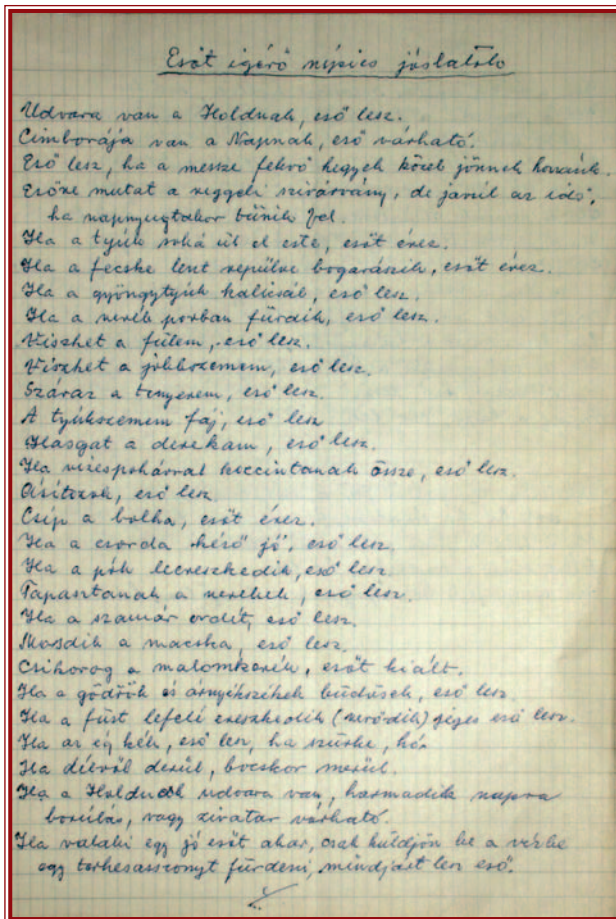 Esőt igérő népies jóslatok
Udvara van a Holdnak, eső lesz.
Cimborája van a Napnak, eső várható.
Eső lesz, ha a messze fekvő hegyek közel jönnek hozzánk.
Esőre mutat a reggeli szivárvány, de javúl az idő,
ha napnyugtakor tűnik fel.
Ha a tyúk soká ül el este, esőt érez.
Ha a fecske lent repülve bogarászik, esőt érez.
Ha a gyöngytyúk kalicsál, eső lesz.
Ha a veréb porban fürdik, eső lesz.
Viszket a fülem, eső lesz.
Viszket a jobbszemem, eső lesz.
Száraz a tenyerem, eső lesz.
A tyúkszemem fáj, eső lesz
Hasgat a derekam, eső lesz.
Ha vizespohárral koccintanak össze, eső lesz.
Ásítozok, eső lesz
Csíp a bolha, esőt érez.
Ha a csorda késő jő, eső lesz.
Ha a pók leereszkedik, eső lesz.
Tapasztanak a verebek, eső lesz.
Ha a szamár ordít, eső lesz.
Mosdik a macska, eső lesz.
Csikorog a malomkerék, esőt kiált.
Ha a gödrök és árnyékszékek büdösek, eső lesz.
Ha a füst lefelé ereszkedik (verődik) géges eső lesz.
Ha az ég kék, eső lesz, ha szürke, hó.
Ha délről derül, bocskor merül.
Ha a Holdnak udvara van, harmadik napra
borúlás, vagy zivatar várható.
Ha valaki egy jó esőt akar, csak küldjön be a vízbe
egy terhesasszonyt fürdeni, mindjárt lesz eső.